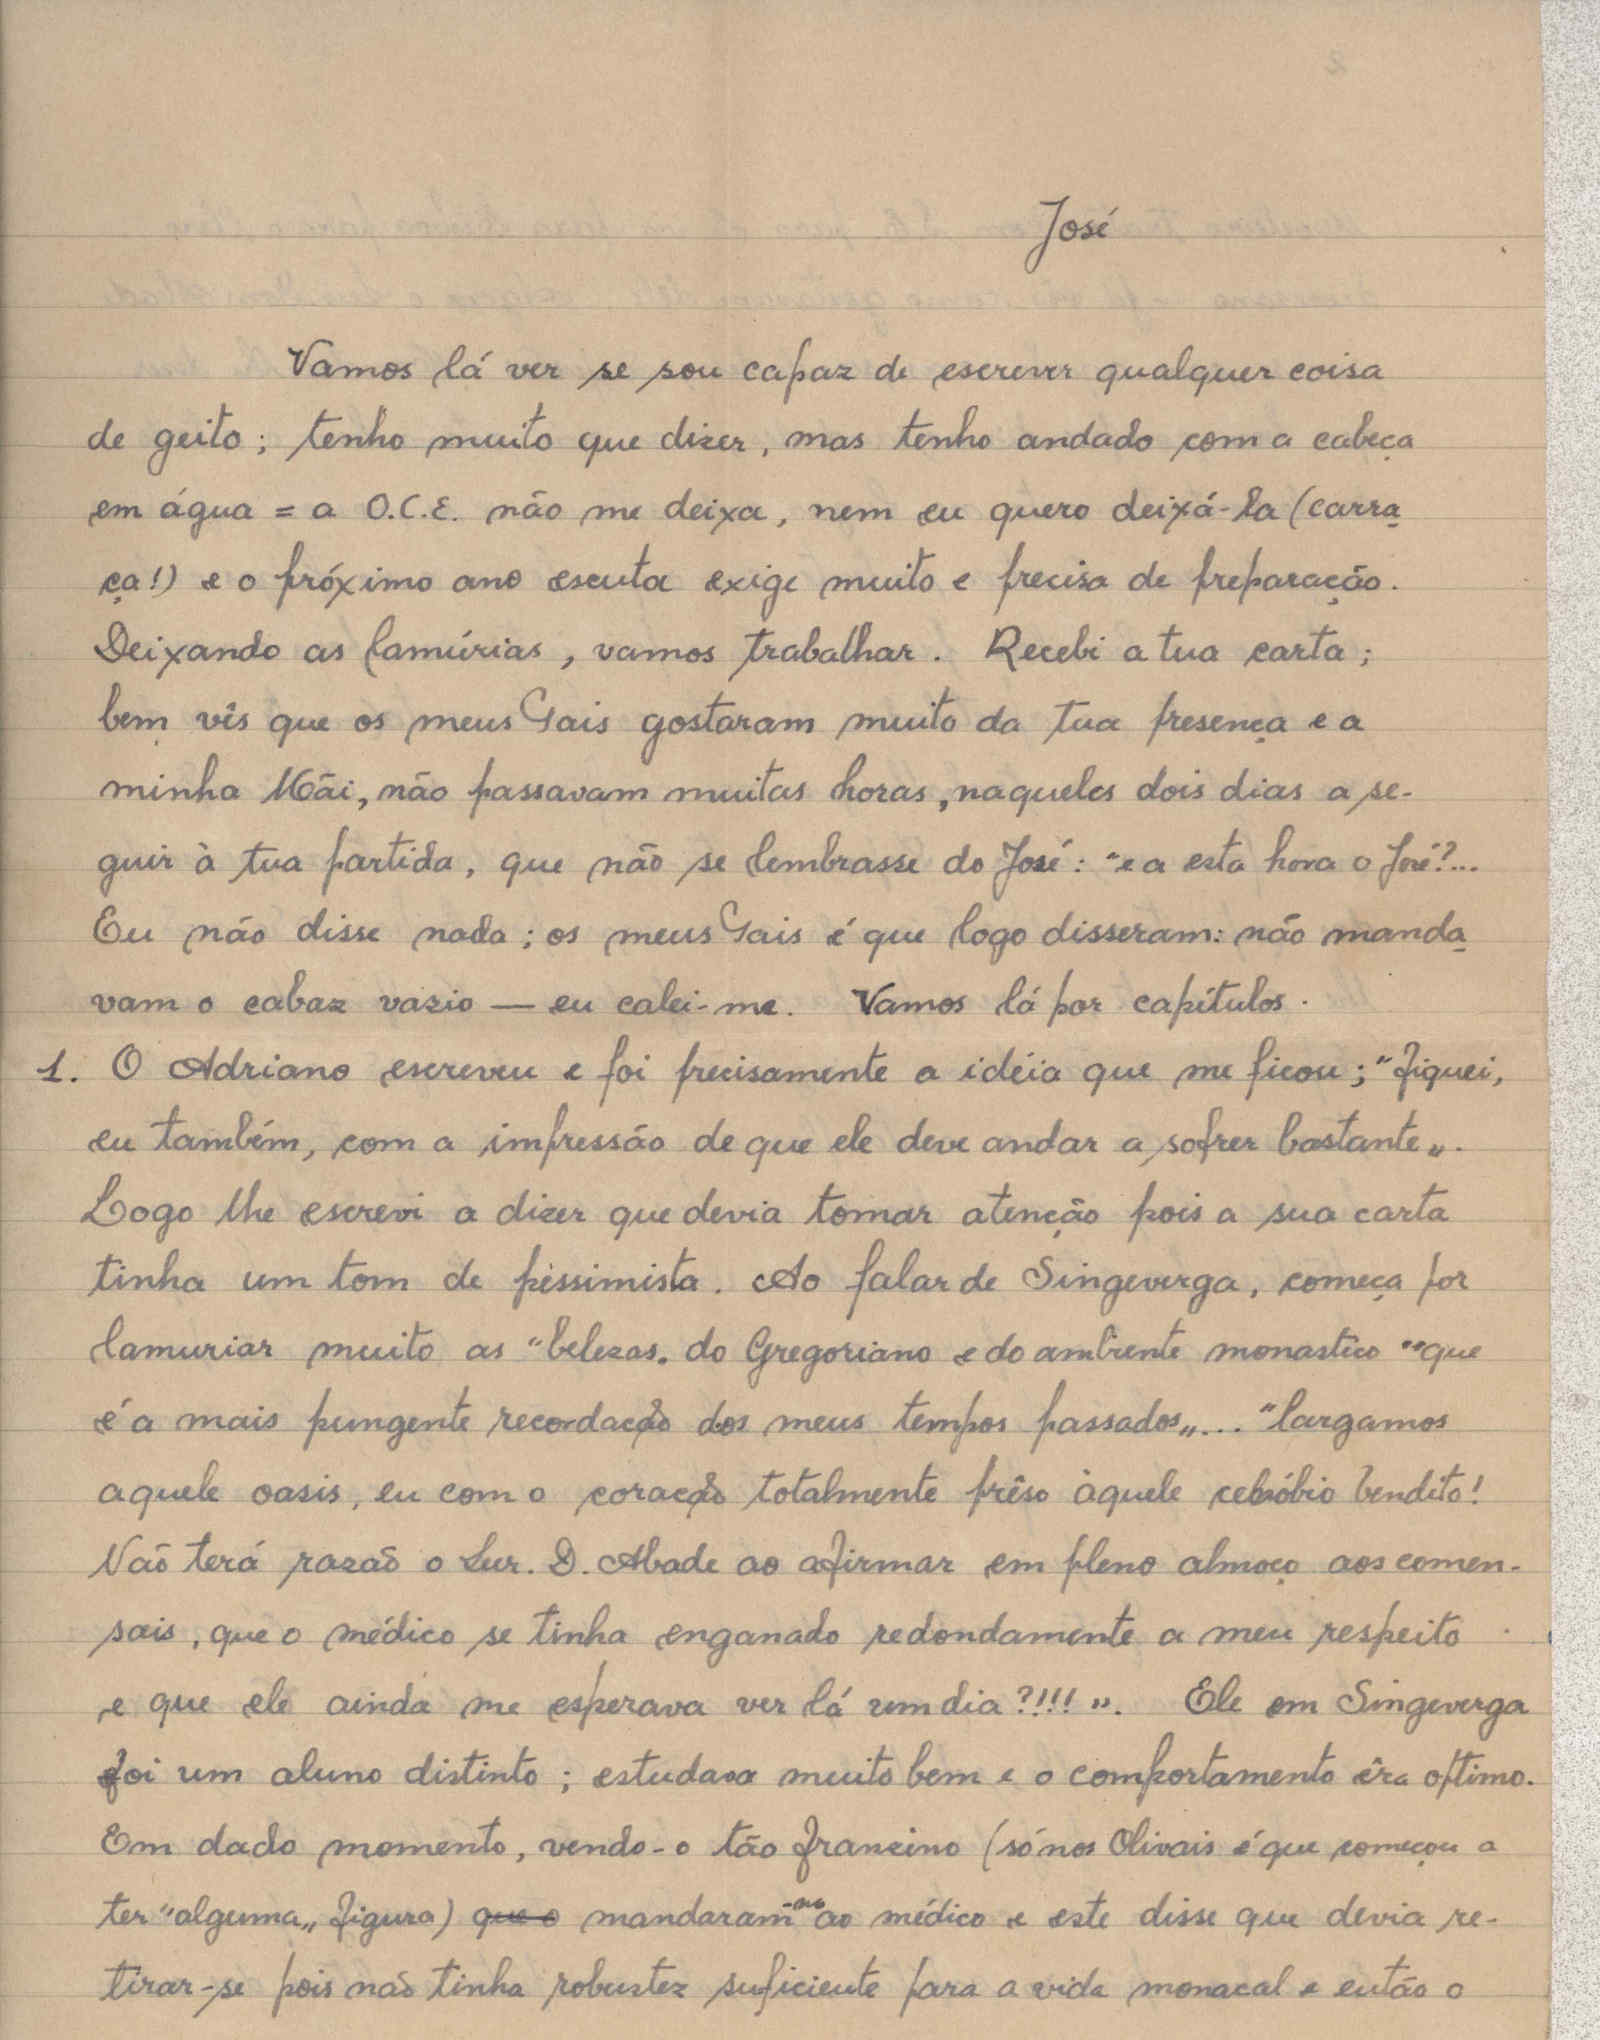 José
Vamos lá ver se sou capaz de escrever qualquer coisa
de geito; tenho muito que dizer, mas tenho andado com a cabeça
em água = a O.C.E. não me deixa, nem eu quero deixá-la (carra
ça!) e o próximo ano escuta exige muito e precisa de preparação.
Deixando as lamúrias, vamos trabalhar. Recebi a tua carta;
bem vês que os meus Pais gostaram muito da tua presença e a
minha Mãi, não passavam muitas horas, naqueles dois dias a se-
guir à tua partida, que não se lembrasse do José: "e a esta hora o José?...
Eu não disse nada; os meus Pais é que logo disseram: não manda
vam o cabaz vazio — eu calei-me. Vamos lá por capítulos.
1. O Adriano escreveu e foi precisamente a idéia que me ficou; "Fiquei,
eu também, com a impressão de que ele deve andar a sofrer bastante".
Logo lhe escrevi a dizer que devia tomar atenção pois a sua carta
tinha um tom de pèssimista. Ao falar de Singeverga, começa por
lamuriar muito as "belezas. do Gregoriano e do ambiente monastico ""que
é a mais pungente recordação dos meus tempos passados"... "largamos
aquele oasis, eu com o coração totalmente prêso àquele cebióbio bendito!
Não terá razão o Snr. D. Abade ao afirmar em pleno almoço aos comen-
sais, que o médico se tinha enganado redondamente a meu respeito
e que ele ainda me esperava ver lá um dia?!!!". Ele em Singeverga
foi um aluno distinto; estudava muito bem e o comportamento êra optimo.
Em dado momento, vendo-o tão franzino (só nos Olivais é que começou a
ter "alguma" figura) que o mandaram-no ao médico e este disse que devia re-
tirar-se pois não tinha robustez suficiente para a vida monacal e então o